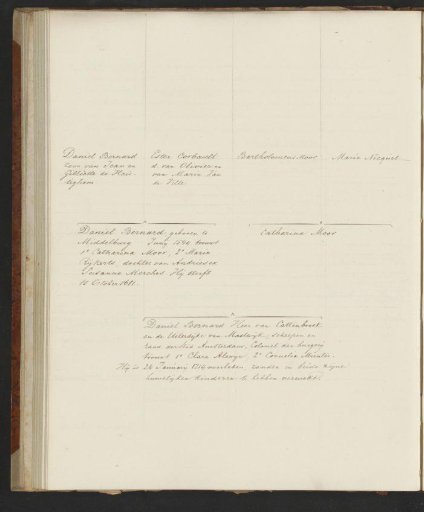 Daniel Bernard
zoon van Jean en
Gilliatte de Hau-
deghem
Ester Corbault
d. van Olivier en
van Maria Van
de Ville
Bartholomeus Moor
Maria Nicquet
Daniel Bernard, geboren te
Middelburg Juny 1594 trouwt
1e Catharina Moor, 2e Maria
Rijkerts, dochter van Andries en
Susanna Merchis Hij sterft
10 October 1681.
Catharina Moor
Daniel Bernard Heer van Cattenbroek
en de Uiterdyke van Mastwyk, schepen en
raad der stad Amsterdam, Colonel der burgery
trouwt 1e Clara Alewyn 2e Cornelia Munter.
Hij is 24 January 1714 overleden, zonder in beide zijne
huwelyken kinderen te hebben verwekt.